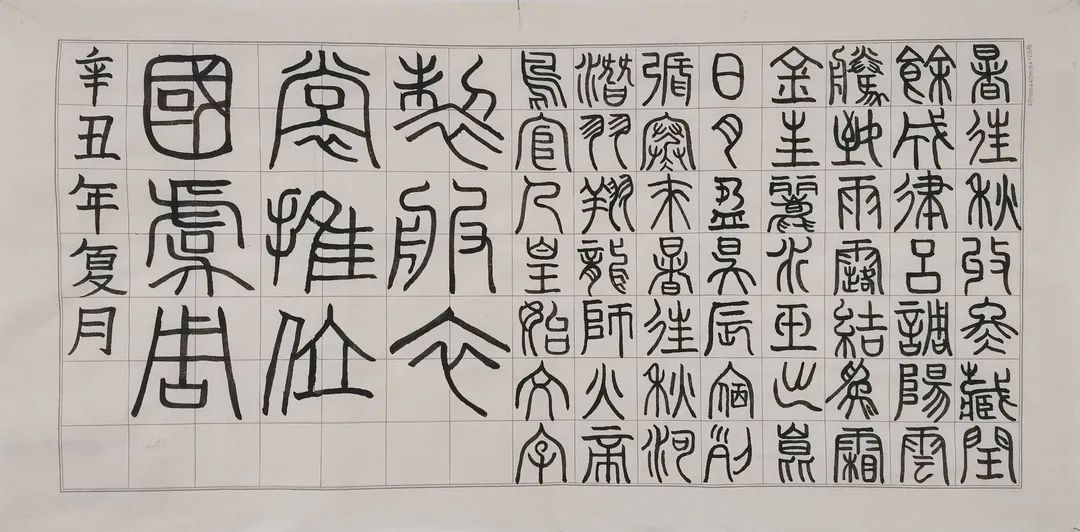 暑往秋收冬藏閏
餘成律呂調陽雲
騰致雨露結為霜
金生麗水玉出崑
日月盈昃辰宿列
張寒來暑往秋河
潛羽翔龍師火帝
鳥官人皇始文字
製服衣
裳推位
國虞周
辛丑年夏月